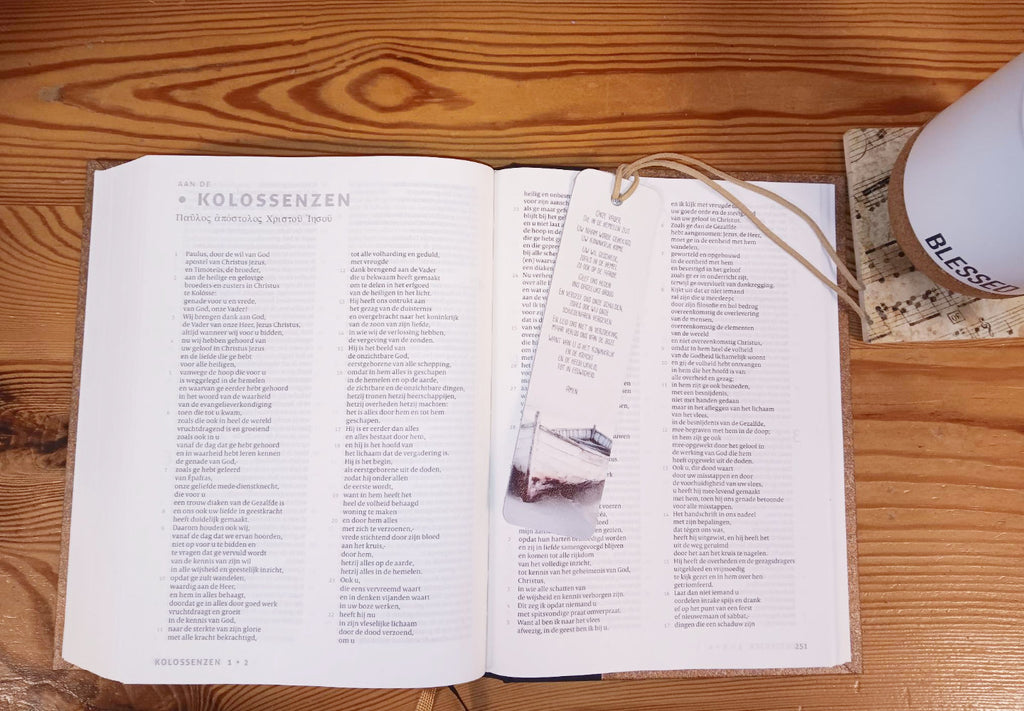 AAN DE
• KOLOSSENZEN
Παῦλος ἀπόστολος Χριστοῦ Ἰησοῦ
1 Paulus, door de wil van God
apostel van Christus Jezus,
en Timoteüs, de broeder,
2 aan de heilige en gelovige
broeders en zusters in Christus
te Kolosse:
genade voor u en vrede,
van God, onze Vader!
3 Wij brengen dank aan God,
de Vader van onze Heer, Jezus Christus,
altijd wanneer wij voor u bidden,
4 nu wij hebben gehoord van
uw geloof in Christus Jezus
en de liefde die ge hebt
voor alle heiligen,
5 vanwege de hoop die voor u
is weggelegd in de hemelen
en waarvan ge eerder hebt gehoord
in het woord van de waarheid
van de evangelieverkondiging
6 toen die tot u kwam,
zoals die ook in heel de wereld
vruchtdragend is en groeiend
zoals ook in u
vanaf de dag dat ge hebt gehoord
en in waarheid hebt leren kennen
de genade van God,-
7 zoals ge hebt geleerd
van Epafras,
onze geliefde mede-dienstknecht,
die voor u
een trouw diaken van de Gezalfde is
8 en ons ook uw liefde in geestkracht
heeft duidelijk gemaakt.
9 Daarom houden ook wij,
vanaf de dag dat we ervan hoorden,
niet op voor u te bidden en
te vragen dat ge vervuld wordt
van de kennis van zijn wil
in alle wijsheid en geestelijk inzicht,
10 opdat ge zult wandelen,
waardig aan de Heer,
en hem in alles behaagt,
doordat ge in alles door goed werk
vruchtdraagt en groeit
in de kennis van God,
11 naar de sterkte van zijn glorie
met alle kracht bekrachtigd,
tot alle volharding en geduld,
met vreugde
12 dank brengend aan de Vader
die u bekwaam heeft gemaakt
om te delen in het erfgoed
van de heiligen in het licht.
13 Hij heeft ons ontrukt aan
het gezag van de duisternis
en overgebracht naar het koninkrijk
van de zoon van zijn liefde,
14 in wie wij de verlossing hebben,
de vergeving van de zonden.
15 Hij is het beeld van
de onzichtbare God,
eerstgeborene van alle schepping,
16 omdat in hem alles is geschapen
in de hemelen en op de aarde,
de zichtbare en de onzichtbare dingen,
hetzij tronen hetzij heerschappijen,
hetzij overheden hetzij machten:
het is alles door hem en tot hem
geschapen,
17 Hij is er eerder dan alles
en alles bestaat door hem,
18 en hij is het hoofd van
het lichaam dat de vergadering is.
Hij is het begin,
als eerstgeborene uit de doden,
zodat hij onder allen
de eerste wordt,
19 want in hem heeft het
heel de volheid behaagd
woning te maken
20 en door hem alles
met zich te verzoenen,-
vrede stichtend door zijn bloed
aan het kruis,-
door hem,
hetzij alles op de aarde,
hetzij alles in de hemelen.
21 Ook u,
die eens vervreemd waart
en in denken vijanden waart
in uw boze werken,
22 heeft hij nu
in zijn vleselijke lichaam
door de dood verzoend,
om u
KOLOSSENZEN 1 • 2
heilig en onbesp
voor zijn aansch
23 als ge maar
blijft bij het ge
en u niet laat a
de hoop in de
die ge heb
en die gepre
bij alle sche
(en) waarv
een diaken
24 Nu verheu
ONZE VADER,
DIE IN DE HEMELEN ZIJT,
UW NAAM WORDE GEHEILIGD;
UW KONINKRIJK KOME;
UW WIL GESCHIEDE,
ZOALS IN DE HEMEL
ZO OOK OP DE AARDE.
GEEF ONS HEDEN
ONS DAGELIJKS BROOD;
EN VERGEEF ONS ONZE SCHULDEN,
ZOALS OOK WIJ ONZE
SCHULDENAREN VERGEVEN;
EN LEID ONS NIET IN VERZOEKING,
MAAR VERLOS ONS VAN DE BOZE.
WANT VAN U IS HET KONINKRIJK
EN DE KRACHT
EN DE HEERLIJKHEID,
TOT IN EEUWIGHEID.
AMEN
opdat hun harten bemoedigd worden
en zij in liefde samengevoegd blijven
en komen tot alle rijkdom
van het volledige inzicht,
tot kennis van het geheimenis van God,
Christus,
3 in wie alle schatten van
de wijsheid en kennis verborgen zijn.
4 Dit zeg ik opdat niemand u
met spitsvondige praat omverpraat.
5 Want al ben ik naar het vlees
afwezig, in de geest ben ik bij u,
en ik kijk met vreugde toe
uw goede orde en de stevigheid
van uw geloof in Christus.
6 Zoals ge dan de Gezalfde
hebt aangenomen: Jezus, de Heer,
moet ge in de eenheid met hem
wandelen;
7 geworteld en opgebouwd
in de eenheid met hem
en bevestigd in het geloof
zoals ge er in onderricht zijt,
terwijl ge overvloeit van dankzegging.
8 Kijkt uit dat er niet iemand
zal zijn die u meesleept
door zijn filosofie en hol bedrog
overeenkomstig de overlevering
van de mensen,
overeenkomstig de elementen
van de wereld
en niet overeenkomstig Christus,
9 omdat in hem heel de volheid
van de Godheid lichamelijk woont
10 en gij de volheid hebt ontvangen
in hem die het hoofd is van
alle overheid en gezag;
11 in hem zijt ge ook besneden,
met een besnijdenis,
niet met handen gedaan
maar in het afleggen van het lichaam
van het vlees,
in de besnijdenis van de Gezalfde,
12 mee-begraven met hem in de doop;
in hem zijt ge ook
mee-opgewekt door het geloof in
de werking van God die hem
heeft opgewekt uit de doden.
13 Ook u, die dood waart
door uw misstappen en door
de voorhuidigheid van uw vlees,
u heeft hij mee-levend gemaakt
met hem, toen hij ons genade betoonde
voor alle misstappen.
14 Het handschrift in ons nadeel
met zijn bepalingen,
dat tegen ons was,
heeft hij uitgewist, en hij heeft het
uit de weg geruimd
door het aan het kruis te nagelen.
15 Hij heeft de overheden en de gezagdragers
uitgekleed en vrijmoedig
te kijk gezet en in hem over hen
getriomfeerd.
16 Laat dan niet iemand u
oordelen inzake spijs en drank
of op het punt van een feest
of nieuwemaan of sabbat,-
17 dingen die een schaduw zijn
251
BLESSED